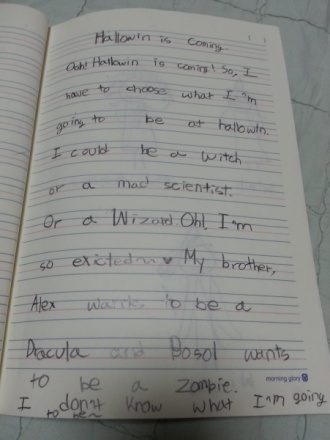 Hallowin is coming
Ooh! Hallowin is coming! So, I
have to choose what I'm
going to be at hallowin.
I could be a witch
or a mad scientist.
Or a Wizard. Oh!, I'm
so exicted~~♥ My brother,
Alex wants to be a
Dracula and Dosol wants
to be a zombie.
morning glory
I don't know what I'm going
to be~